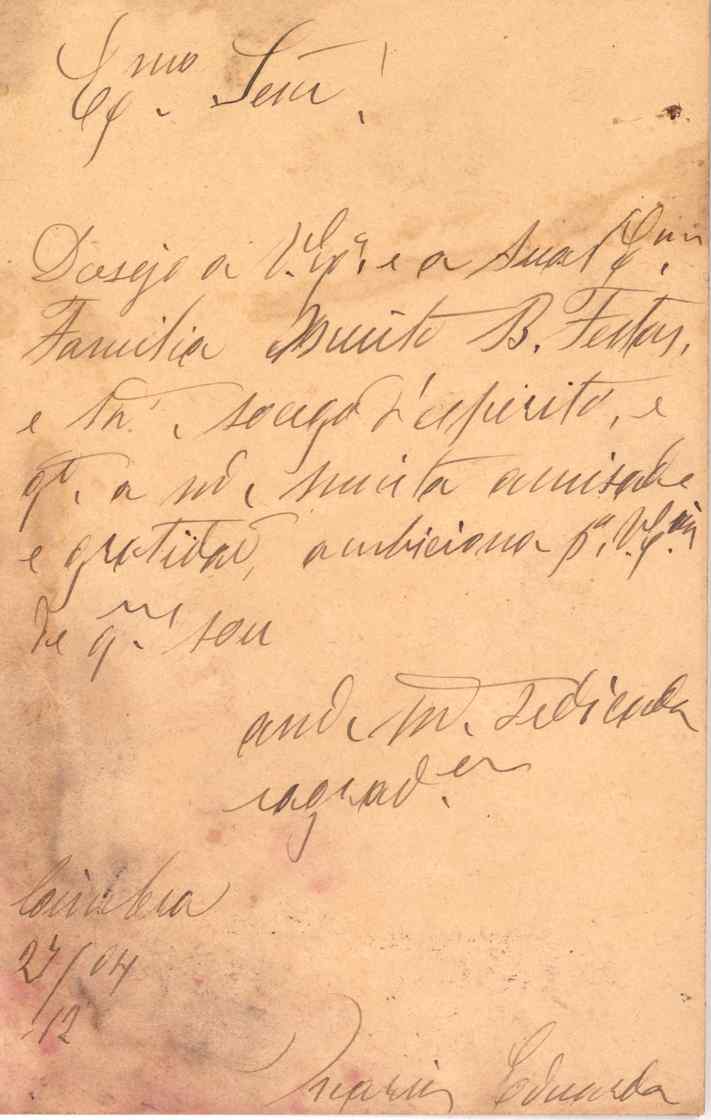 Exmo. Senr!
Desejo a V. Exª. e a sua Exma.
Familia Muito B. Festas,
e socego d'espirito, e
qt. a md. muita amisade
e gratidaõ, ambiciona pª. V. Exª.
de qm. sou
amd. Mt. Dedicada
e agrad.
Coimbra
27/04
12
Maria Eduarda